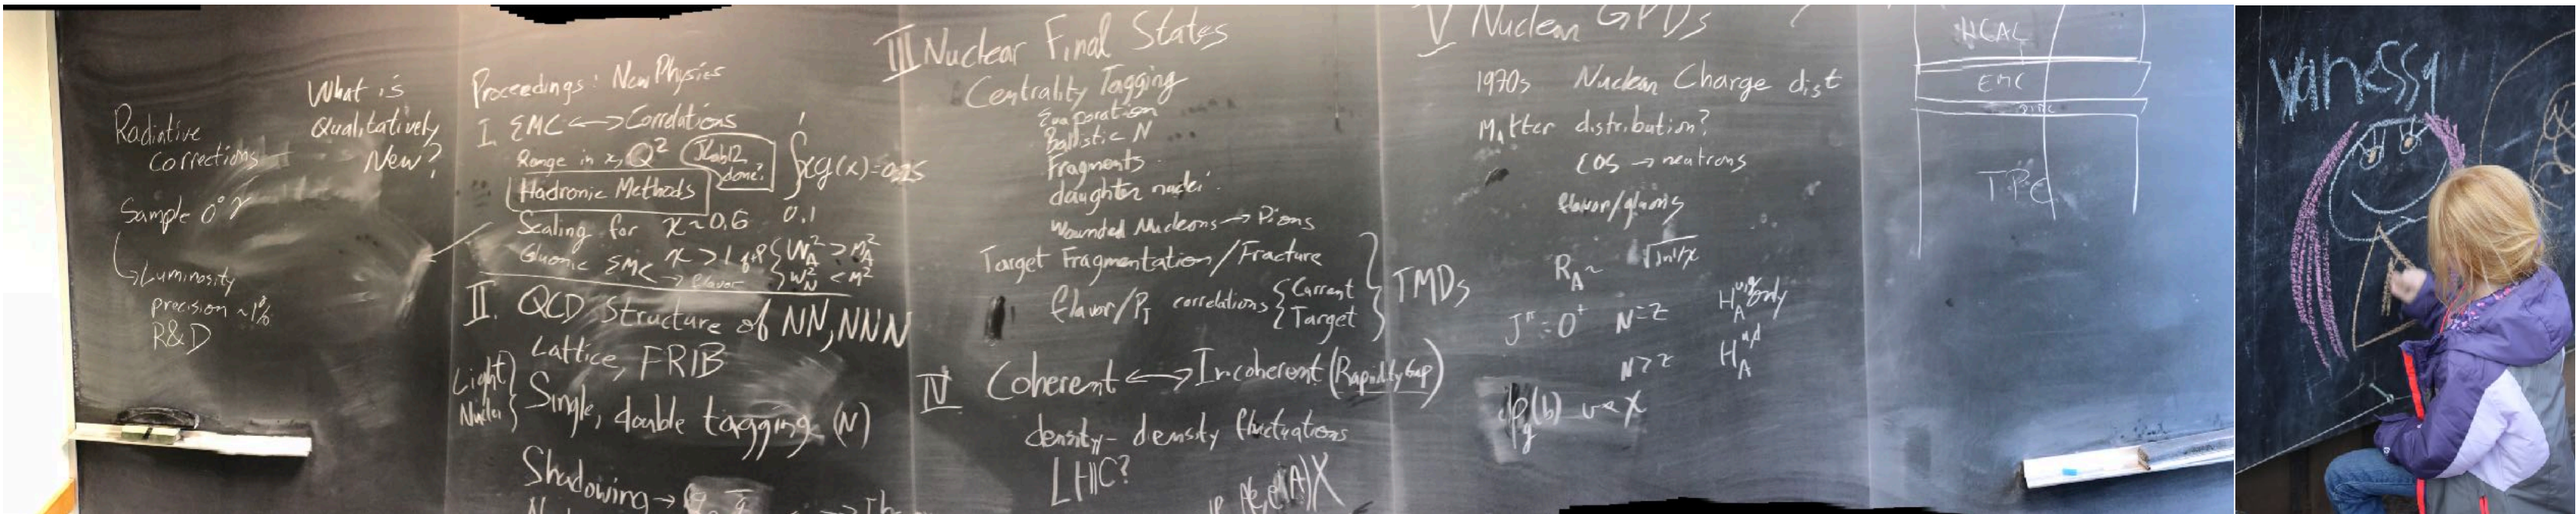 Radiative
corrections
Sample 0° γ
Luminosity
precision ~1%
R&D
What is
Qualitatively
New?
Proceedings: New Physics
I. EMC ↔ Correlations
Range in x, Q²
JLab12
done?
Hadronic Methods
∫xg(x)=0.25
0.1
Scaling for x~0.6
Gluonic EMC x>1
W_A² > M_A²
→ flavor W_N² < M²
II. QCD Structure of NN, NNN
Lattice, FRIB
Light
Nuclei
Single, double tagging (N)
Shadowing →
III Nuclear Final States
Centrality Tagging
Evaporation
Ballistic N
Fragments
daughter nuclei
Wounded Nucleons → Pions
Target Fragmentation/Fracture
flavor/P_T correlations { Current
Target
TMDs
IV Coherent ↔ Incoherent (Rapidity Gap)
density - density fluctuations
LHC?
V Nuclear GPDs
1970s Nuclear Charge dist
Matter distribution?
EOS → neutrons
flavor/gluons
R_A ~
J^π = 0⁺ N=Z
only
N>Z H_A^{u,d}
HCAL
EMC
TPC
vanessa